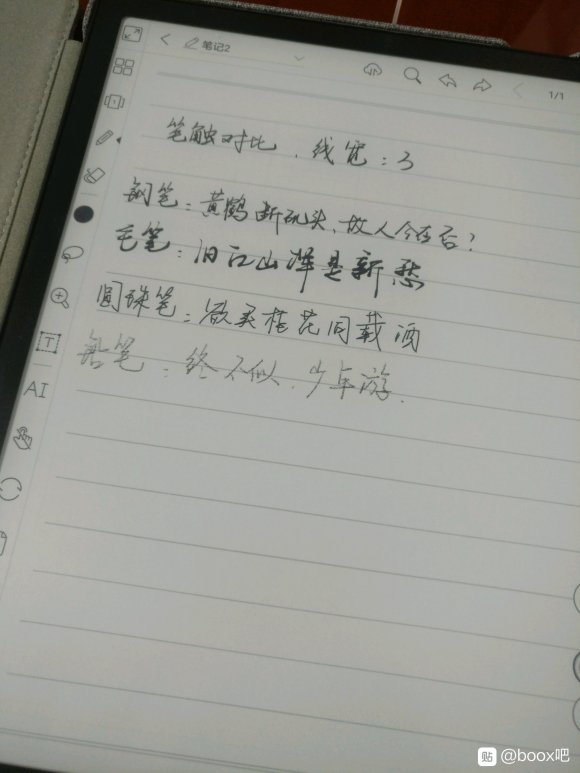 笔记2
1/1
笔触对比，线宽：3
钢笔：黄鹤断矶头，故人今在否？
毛笔：旧江山浑是新愁
圆珠笔：欲买桂花同载酒
铅笔：终不似，少年游.
T
AI
贴 @boox吧